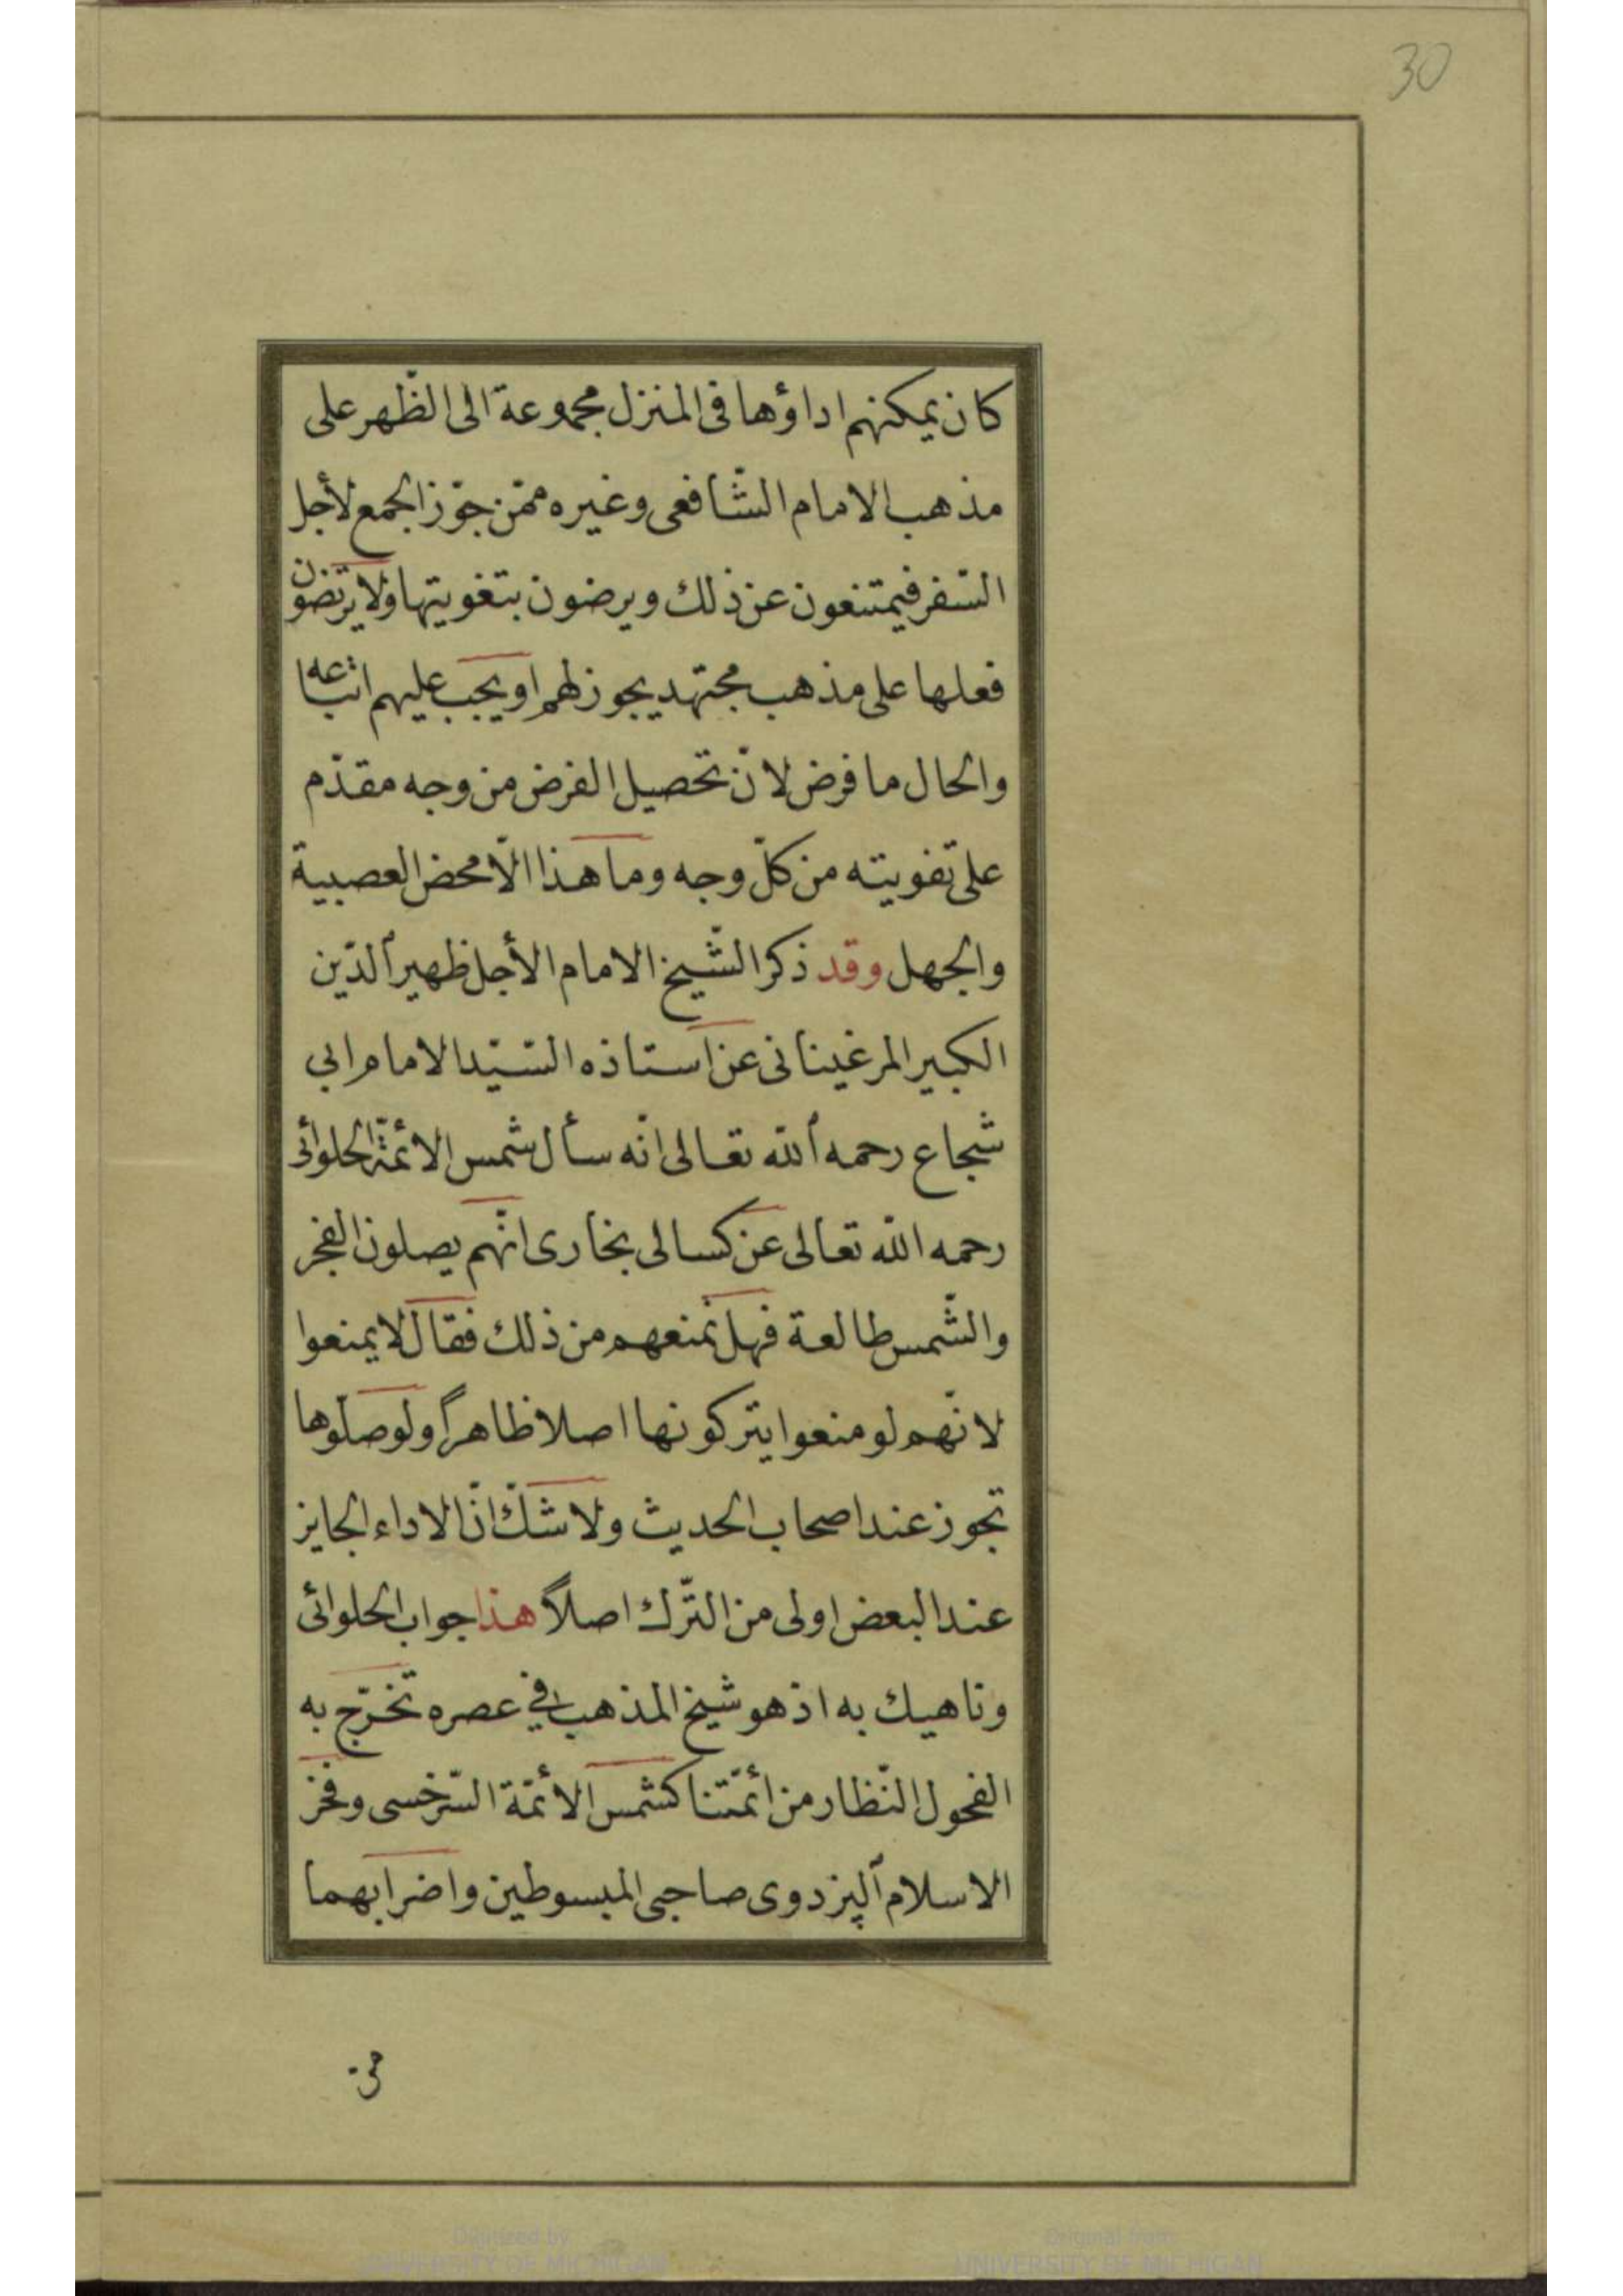 30
كان يمكنهم اداؤها فى المنزل مجموعة الى الظّهر على
مذهب الامام الشّافعى وغيره ممّن جوّز الجمع لأجل
السّفر فيمتنعون عن ذلك ويرضون بتفويتها ولا يرتضون
فعلها على مذهب مجتهد يجوز لهم او يجب عليهم اتباعه
والحال ما فرض لانّ تحصيل الفرض من وجه مقدّم
على تفويته من كلّ وجه وما هذا الّا محض العصبية
والجهل وقد ذكر الشّيخ الامام الأجل ظهير ٱلدّين
الكبير المرغينانى عن استاذه السّيّد الامام ابي
شجاع رحمه ٱلله تعالى انّه سأل شمس الائمّة الحلوائى
رحمه الله تعالى عن كسالى بخارى انّهم يصلون الفجر
والشّمس طالعة فهل نمنعهم من ذلك فقال لا يمنعوا
لانّهم لو منعوا يتركونها اصلا ظاهراً ولو صلّوها
تجوز عند اصحاب الحديث ولا شكّ انّ الاداء الجايز
عند البعض اولى من التّرك اصلاً هذا جواب الحلوائى
وناهيك به اذ هو شيخ المذهب في عصره تخرّج به
الفحول النّظار من أئمّتنا كشمس الأئمّة السّرخسى وفخر
الاسلام ٱلپزدوى صاحبى المبسوطين واضرابهما
من
Digitized by
UNIVERSITY OF MICHIGAN
Original from
UNIVERSITY OF MICHIGAN